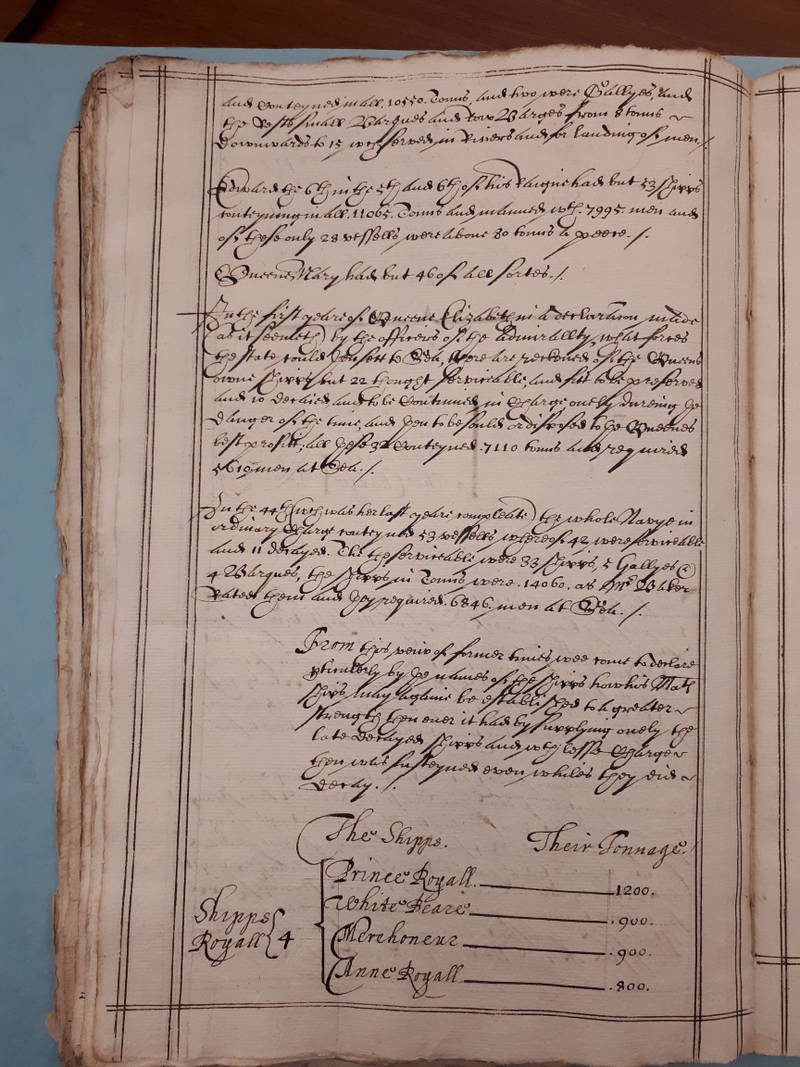 and Conteyned in all .10550. Tonns, and two were Gallyes, and
the Rests small Barques and Row Barges from 8 tonns
downwards to 15 wch served in Rivers and for landing of men /.
Edward the 6th in the 5th and 6th of his Raigne had but 53 shipps
conteyning in all .11065. Tonns and manned wth .7995. men and
of these only 28 vessells were aboue 80 tonns a peece ./.
Queene Mary had but 46 of all sortes ./.
In the first yeare of Queene Elizabeth in a declaracon made
(as it seemeth) by the officers of the Admirallty, what forces
the state could Consett to Sea, there are reckoned of the Queens
owne shipps but 22 thought serviceable, and fitt to be preserved
and 10 decaied, and to be Contenued in Charge onely dureing the
danger of the time, and then to be sould or disposed to the Queenes
best profitt, all these 32 Conteyned .7110 tonns and required
5610 men at Sea ./.
In the 44th (wch was her last yeare compleate) the whole Navye in
ordinary Charge conteyned 53 vessells, whereof 42 were serviceable
and 11 decayed. The the serviceable were 33 shipps, 5 Gallyes &
4 Barques, the shipps in Tonns were .14060. as Mr Baker
Rated them and they required .6846. men at Sea ./.
From this veiw of former times wee come to declare
pticulerly by the names of the shipps how his Mats
shipps may againe be established to a greater
strength then ever it had by supplying onely the
late decayed shipps and wth lesse Charge
then was susteyned even whiles they did
decay ./.
The Shipps. Their Tonnage.
Shipps Royall 4
Prince Royall. 1200.
White Beare .900.
Merehoneur .900.
Anne Royall .800.